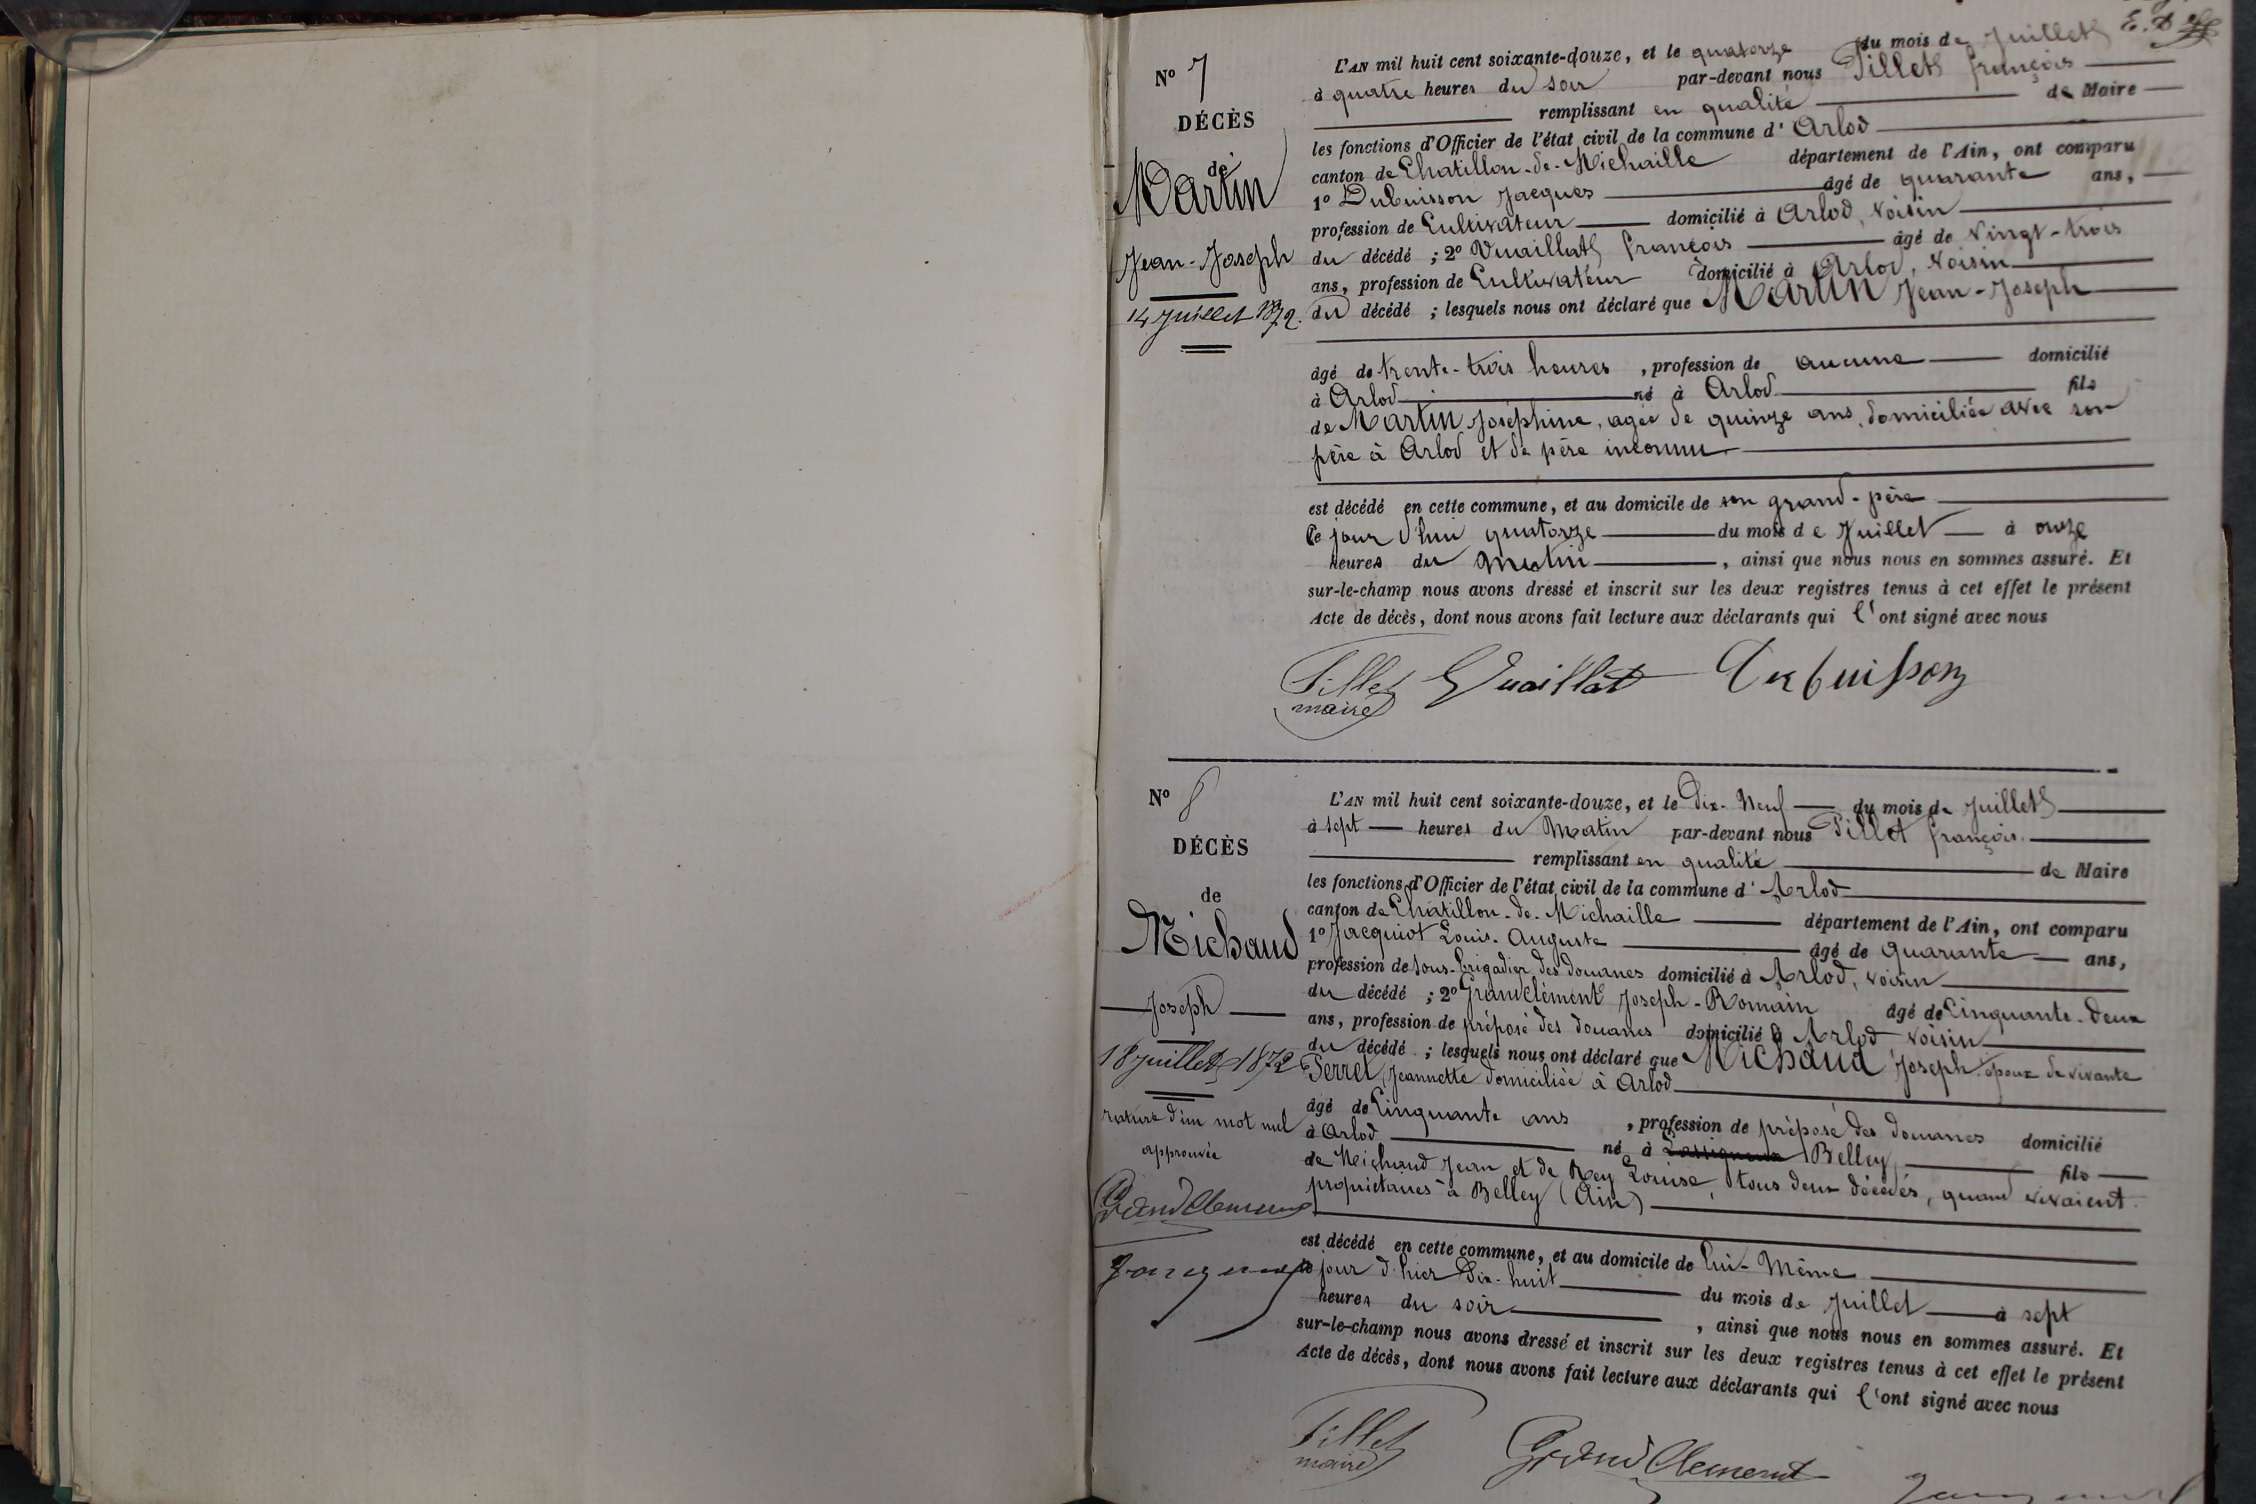 E. D
N° 7
DÉCÈS
de
Martin
Jean-Joseph
14 Juillet 1872.
L'AN mil huit cent soixante-douze, et le quatorze du mois de Juillet
à quatre heures du soir par-devant nous Pillet françois
remplissant en qualité de Maire
les fonctions d'Officier de l'état civil de la commune d' Arlod
canton de Chatillon-de-Michaille département de l'Ain, ont comparu
1° Dubuisson Jacques âgé de quarante ans,
profession de Cultivateur domicilié à Arlod, voisin
du décédé ; 2° Vuaillat françois âgé de vingt-trois
ans, profession de Cultivateur domicilié à Arlod, voisin
du décédé ; lesquels nous ont déclaré que Martin Jean-Joseph
âgé de trente-trois heures, profession de aucune domicilié
à Arlod né à Arlod fils
de Martin Joséphine, agée de quinze ans, domiciliée avec son
père à Arlod et de père inconnu
est décédé en cette commune, et au domicile de son grand-père
Ce jour d'hui quatorze du mois de Juillet à onze
heures du matin, ainsi que nous nous en sommes assuré. Et
sur-le-champ nous avons dressé et inscrit sur les deux registres tenus à cet effet le présent
Acte de décès, dont nous avons fait lecture aux déclarants qui l'ont signé avec nous
Pillet Vuaillat Dubuisson
maire
N° 8
DÉCÈS
de
Michaud
Joseph
18 Juillet 1872
rature d'un mot nul
approuvée
Grandclement
L'AN mil huit cent soixante-douze, et le Dix-Neuf du mois de Juillet
à sept heures du Matin par-devant nous Pillet françois
remplissant en qualité de Maire
les fonctions d'Officier de l'état civil de la commune d' Arlod
canton de Chatillon-de-Michaille département de l'Ain, ont comparu
1° Jacquiot Louis-Auguste âgé de Quarante ans,
profession de sous-brigadier des douanes domicilié à Arlod, voisin
du décédé ; 2° Grandclément Joseph-Romain âgé de Cinquante-deux
ans, profession de préposé des douanes domicilié à Arlod voisin
du décédé ; lesquels nous ont déclaré que Michaud Joseph époux de vivante
Perret Jeannette domiciliée à Arlod
âgé de Cinquante ans, profession de préposé des douanes domicilié
à Arlod né à Belley fils
de Michaud Jean et de Rey Louise, tous deux décédés, quand vivaient
propriétaires à Belley (Ain)
est décédé en cette commune, et au domicile de lui-Même
le jour d'hier dix-huit du mois de Juillet à sept
heures du soir, ainsi que nous nous en sommes assuré. Et
sur-le-champ nous avons dressé et inscrit sur les deux registres tenus à cet effet le présent
Acte de décès, dont nous avons fait lecture aux déclarants qui l'ont signé avec nous
Pillet Grandclement
maire